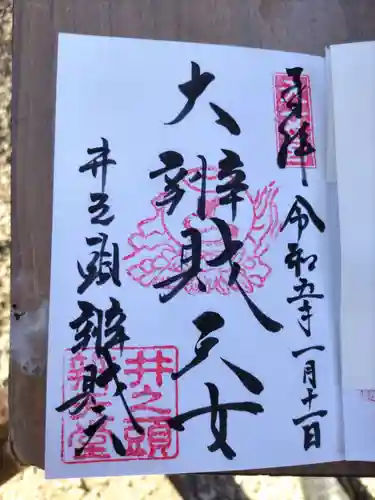 奉拝 令和五年一月十一日
大辨財天女
井之頭辨財天
井之頭